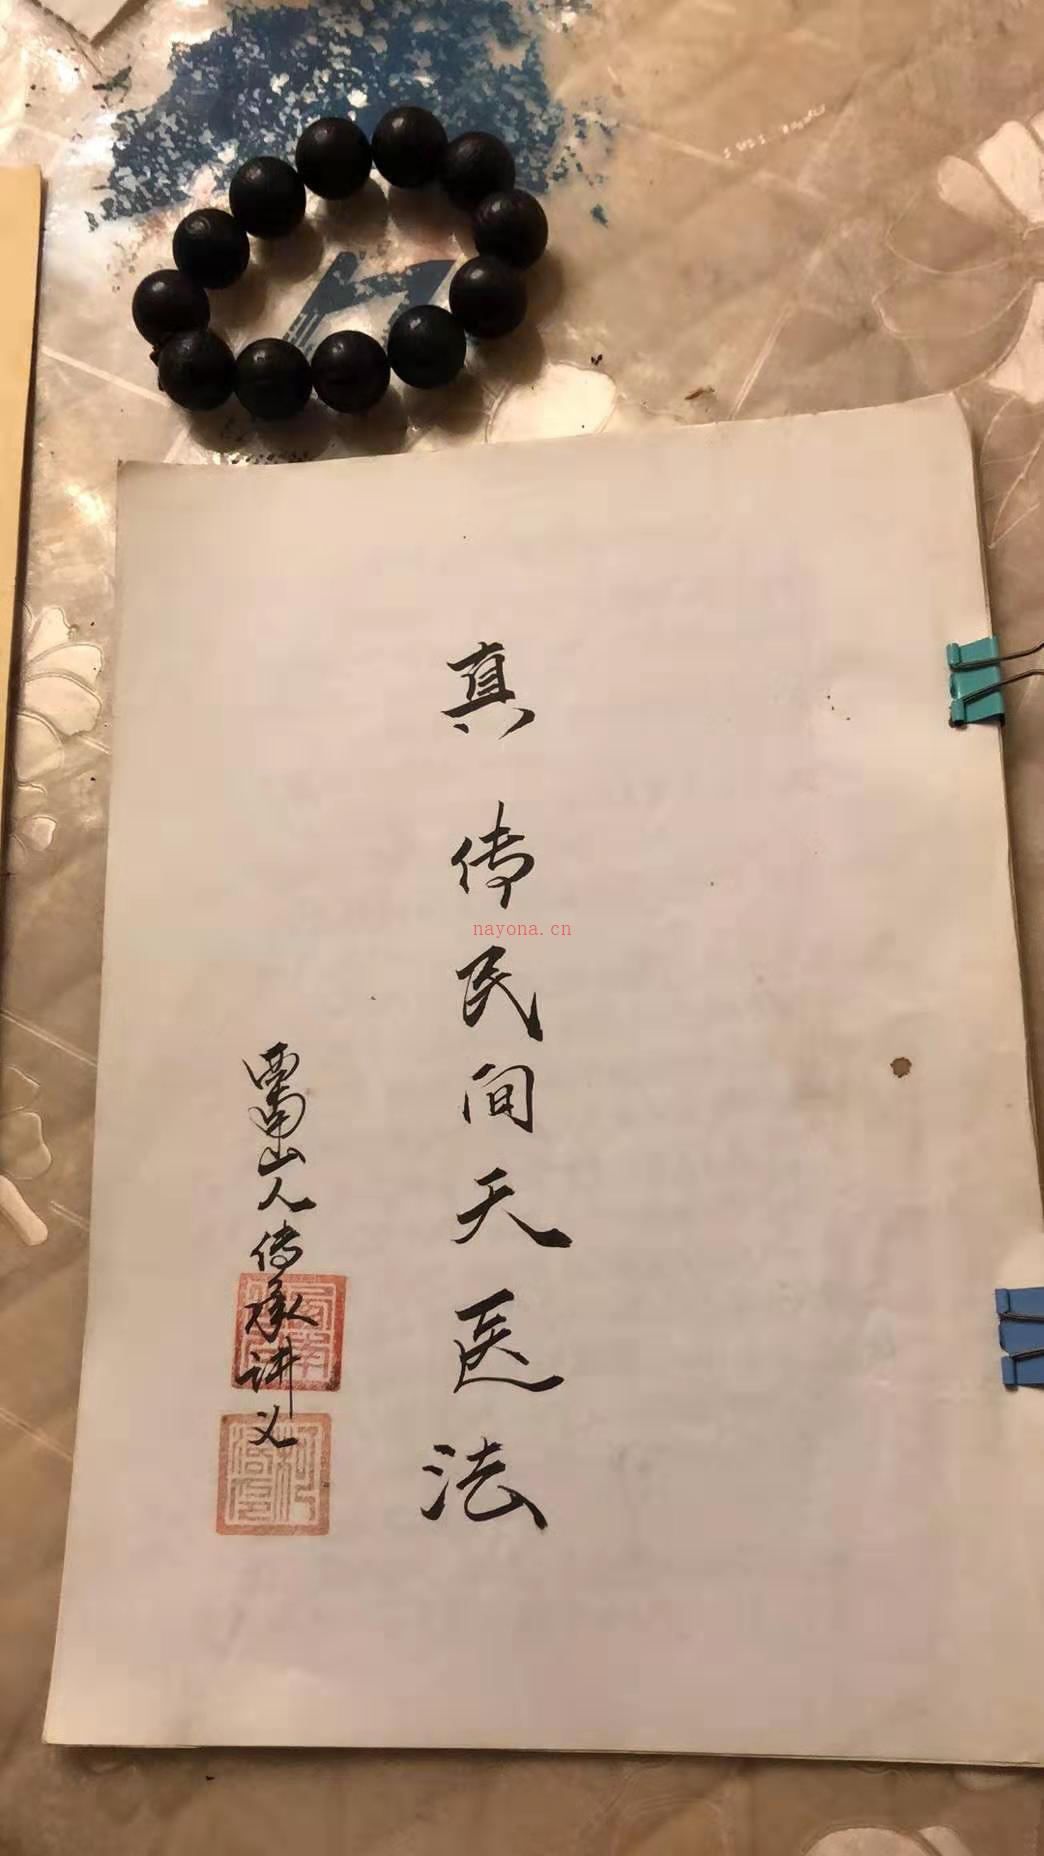 真传民间天医法
西南山人传承讲义
nayona.cn